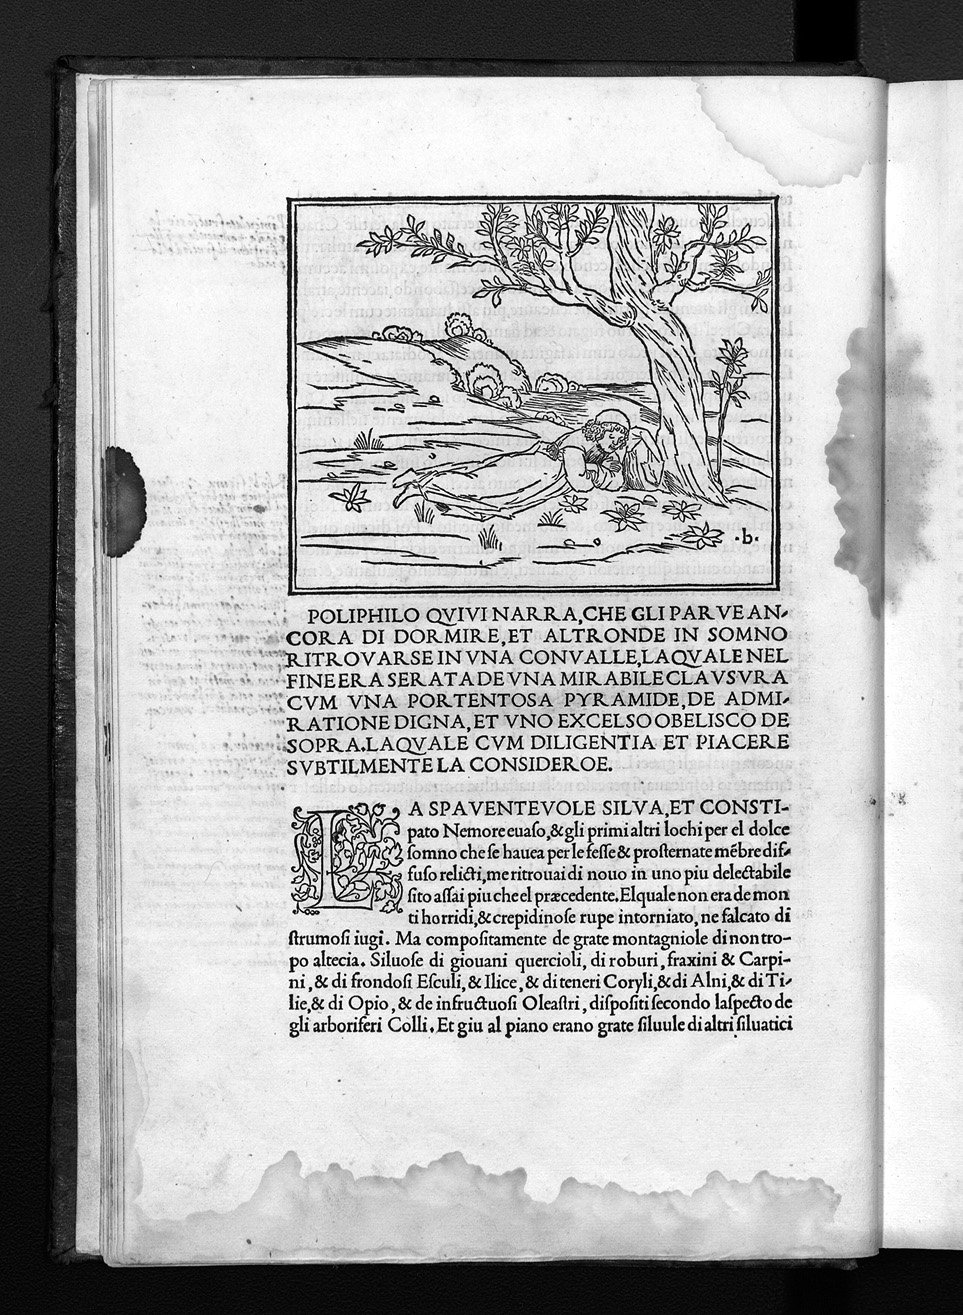 ·b·
POLIPHILO QVIVI NARRA,CHE GLI PARVE AN-
CORA DI DORMIRE,ET ALTRONDE IN SOMNO
RITROVARSE IN VNA CONVALLE,LAQVALE NEL
FINE ERA SERATA DE VNA MIRABILE CLAVSVRA
CVM VNA PORTENTOSA PYRAMIDE,DE ADMI-
RATIONE DIGNA,ET VNO EXCELSO OBELISCO DE
SOPRA.LAQVALE CVM DILIGENTIA ET PIACERE
SVBTILMENTE LA CONSIDEROE.
LA SPAVENTEVOLE SILVA,ET CONSTI-
pato Nemore euaſo,& gli primi altri lochi per el dolce
ſomno che ſe hauea per le feſſe & proſternate mẽbre dif-
fuſo relicti,me ritrouai di nouo in uno piu delectabile
ſito aſſai piu che el præcedente.Elquale non era de mon
ti horridi,& crepidinoſe rupe intorniato, ne falcato di
ſtrumoſi iugi. Ma compoſitamente de grate montagniole di non tro-
po altecia. Siluoſe di giouani quercioli, di roburi, fraxini & Carpi-
ni, & di frondoſi Eſculi, & Ilice, & di teneri Coryli,& di Alni, & di Ti-
lie,& di Opio, & de infructuoſi Oleaſtri, diſpoſiti ſecondo laſpecto de
gli arboriferi Colli. Et giu al piano erano grate ſiluule di altri ſiluatici